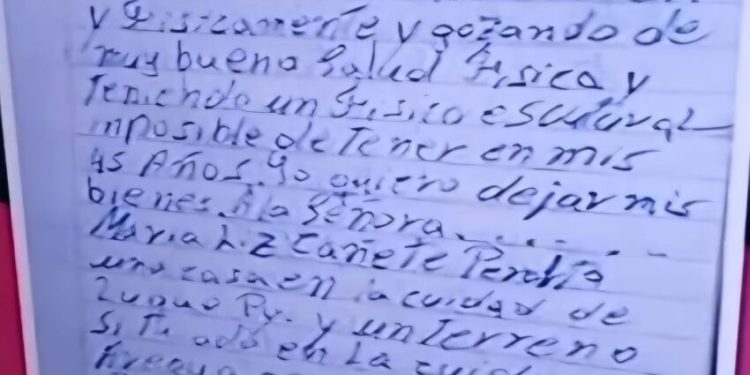 y Fisicamente y gozando de
muy bueno Salud Fisico y
Teniendo un Fisico escultural
imposible de Tener en mis
45 Años. Yo quiero dejar mis
bienes. A la Señora.........
Maria Liz Cañete
una casa en la cuidad de
Luque Py. y un Terreno
Situado en La
Aregua